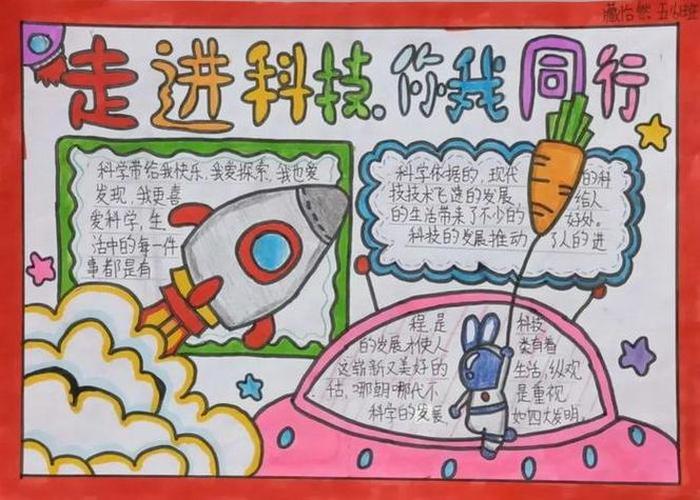 走进科技,你我同行
科学带给我快乐,我爱探索,我也爱
发现,我更喜
爱科学,生
活中的每一件
事都是有
科学依据的,现代 的科
技技术飞速的发展 给人
的生活带来了不少的 好处。
科技的发展推动 了人的进
程,是 科技
的发展才使人 类有着
这崭新又美好的 生活,纵观
估,哪朝哪代不 是重视
科学的发展 如四大发明。